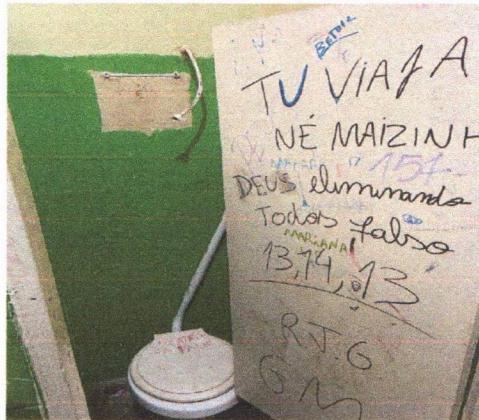 BETOIA
TU VIAJA
NÉ MAIZINH
157
DEUS eliminando
Todos falso
MARIANA
13,14,13
R.J.G
GM